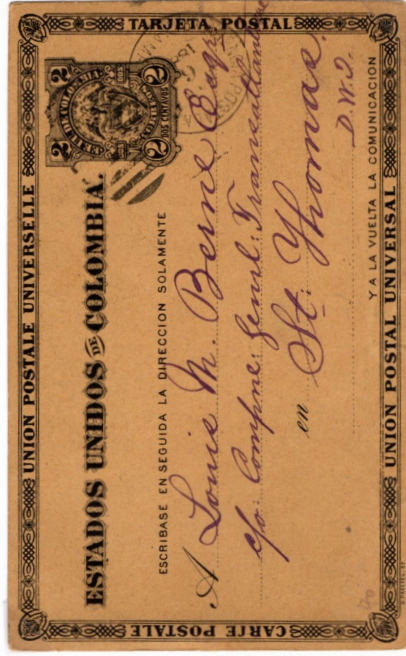 TARJETA POSTAL
UNION POSTALE UNIVERSELLE
2 2
EE. UU. DE COLOMBIA
DOS CENTAVOS
2 2
ESTADOS UNIDOS DE COLOMBIA.
ESCRIBASE EN SEGUIDA LA DIRECCION SOLAMENTE
A Louis M. Berne Esqr
c/o: Compne: Genrl: Transatlantique
en St: Thomas.
D.W.I.
Y A LA VUELTA LA COMUNICACION
UNION POSTAL UNIVERSAL
CARTE POSTALE